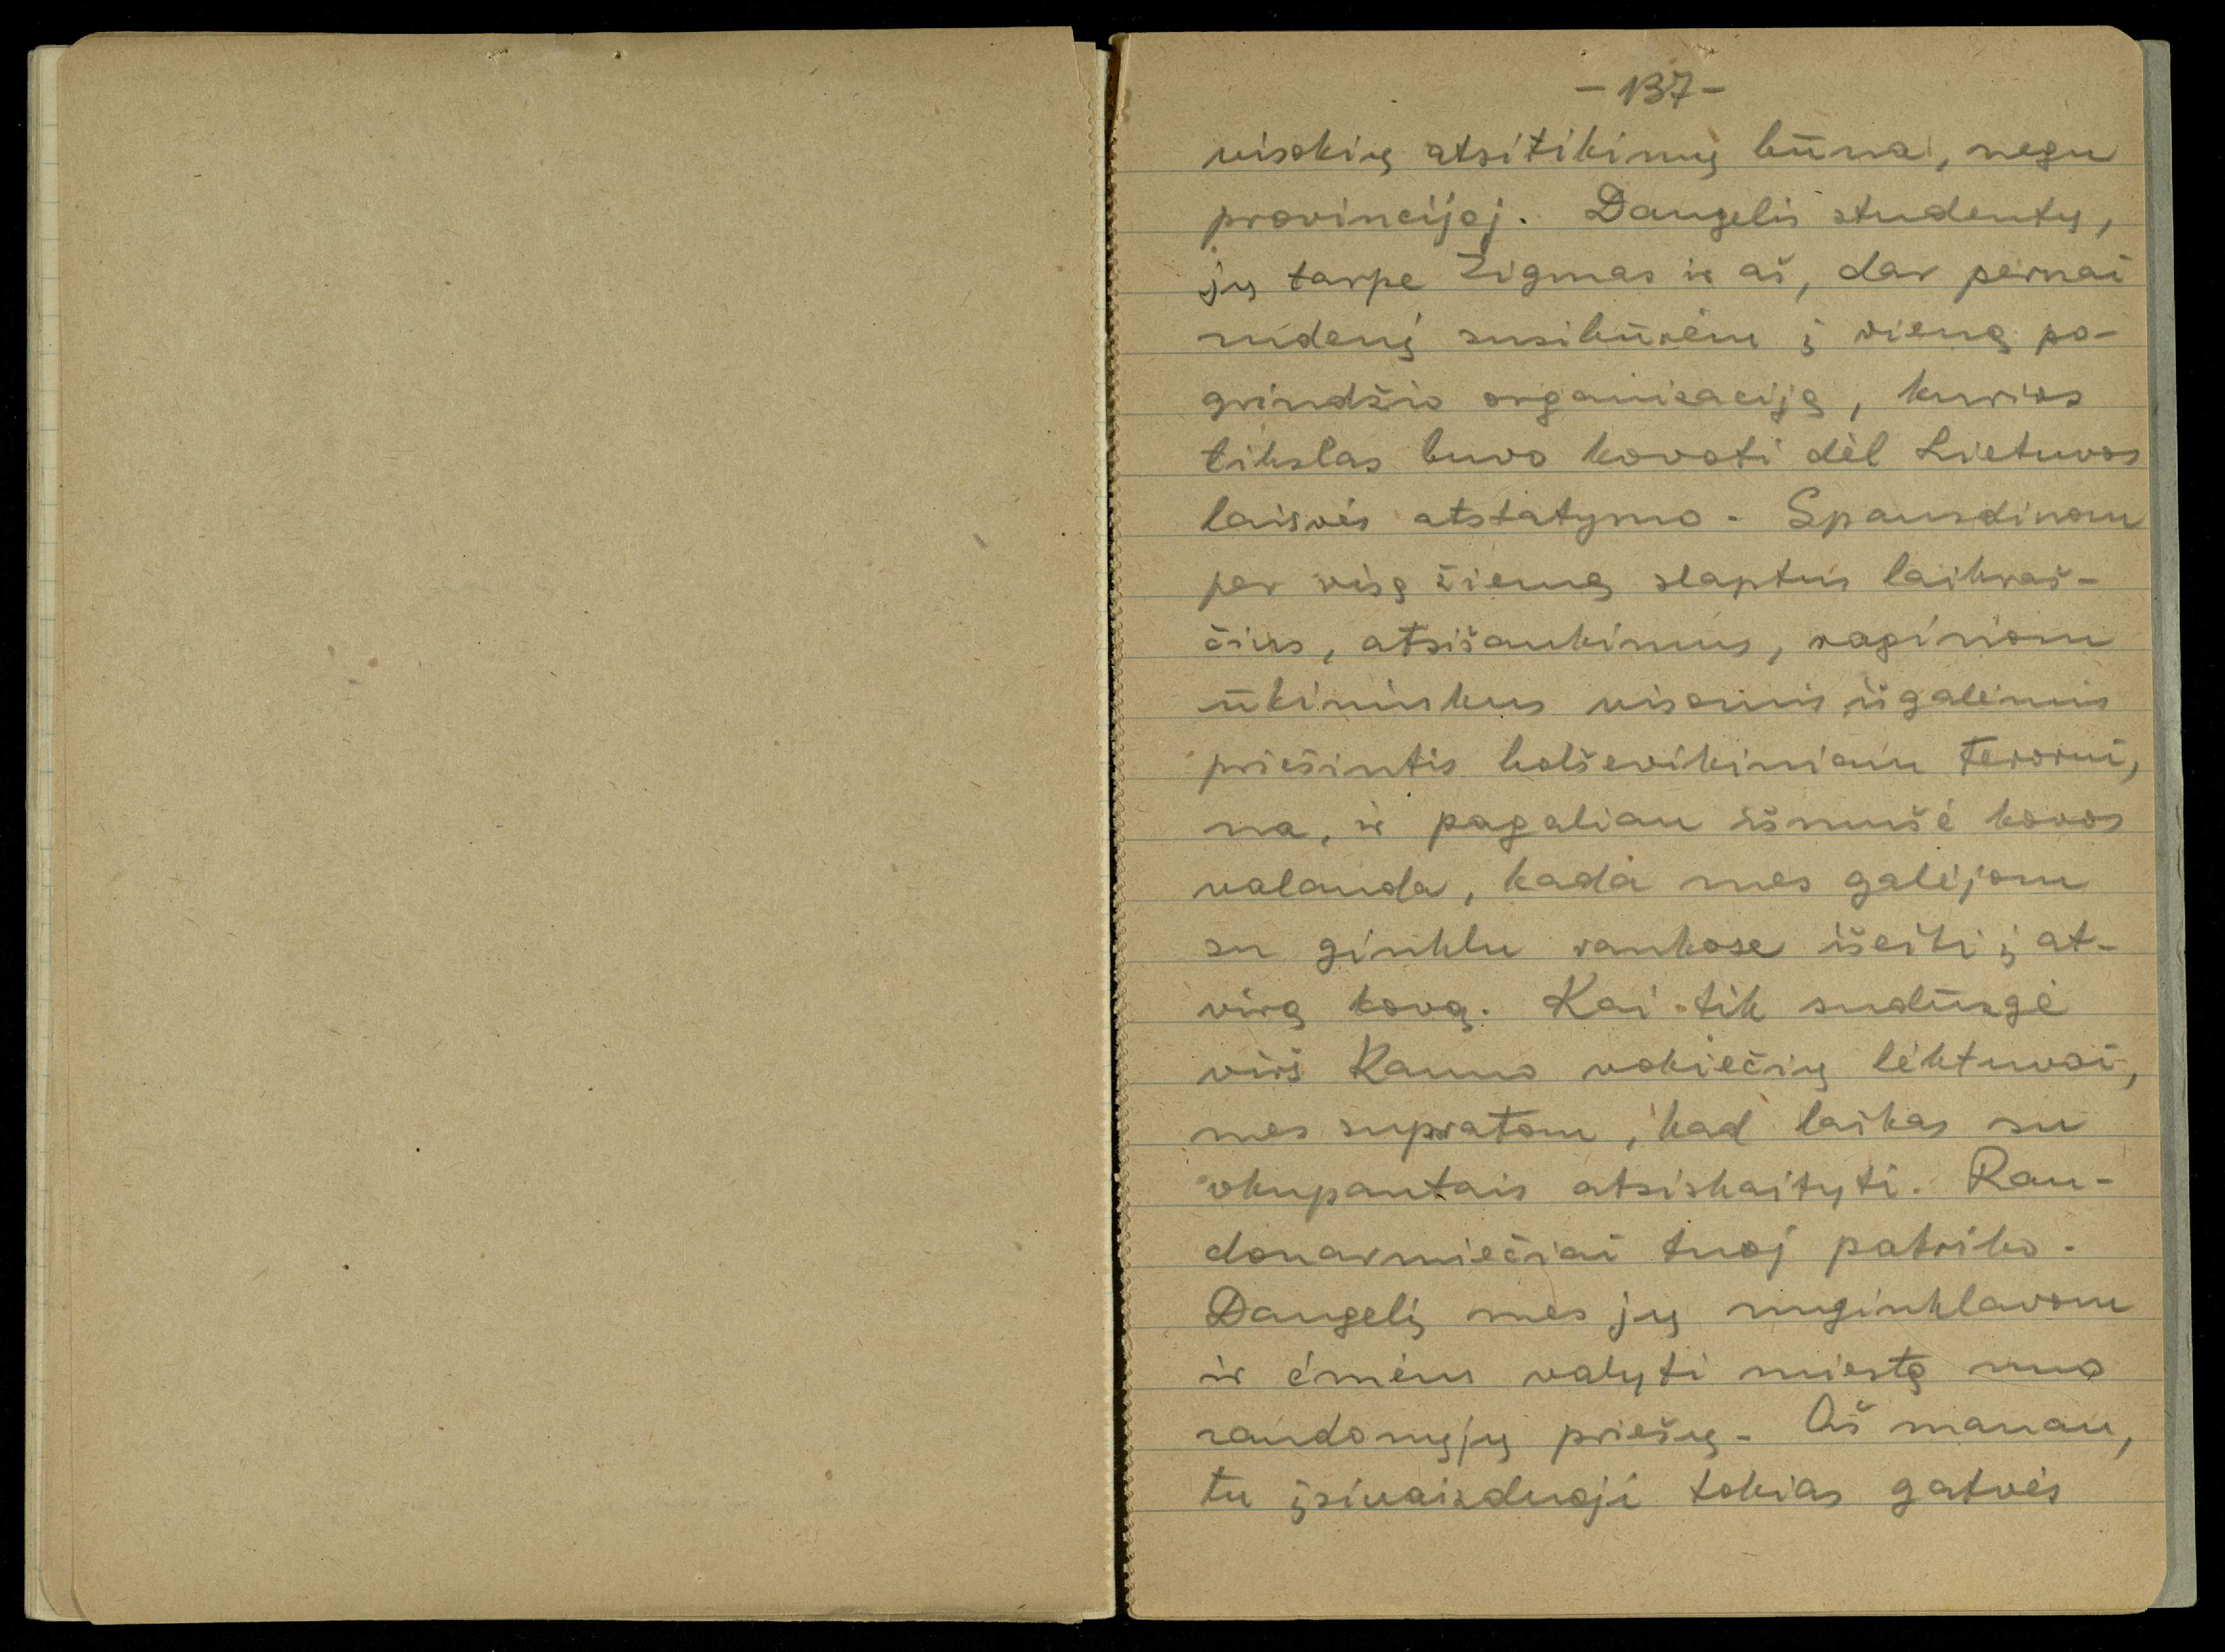 - 137 -
visokių atsitikimų būna, negu
provincijoj. Daugelis studentų,
jų tarpe Zigmas ir aš, dar pernai
rudenį susibūrėm į vieną po-
grindžio organizaciją, kurios
tikslas buvo kovoti dėl Lietuvos
laisvės atstatymo. Spausdinom
per visą žiemą slaptus laikraš-
čius, atsišaukimus, raginom
ūkininkus visomis išgalėmis
priešintis bolševikiniam terorui,
na, ir pagaliau išmušė kovos
valanda, kada mes galėjom
su ginklu rankose išeiti į at-
virą kovą. Kai tik sudūzgė
virš Kauno vokiečių lėktuvai,
mes supratom, kad laikas su
okupantais atsiskaityti. Rau-
donarmiečiai tuoj patriko.
Daugelį mes jų nuginklavom
ir ėmėm valyti miestą nuo
raudonųjų priešų. Aš manau,
tu įsivaizduoji tokias gatvės